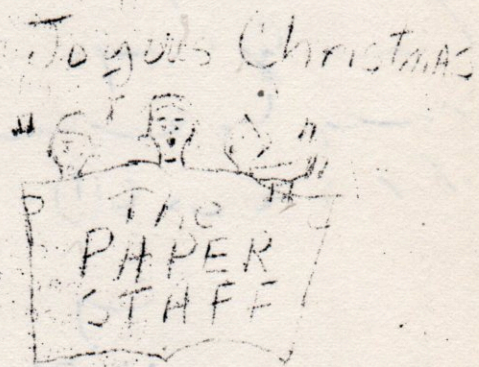 Joyous Christmas
The
PAPER
STAFF